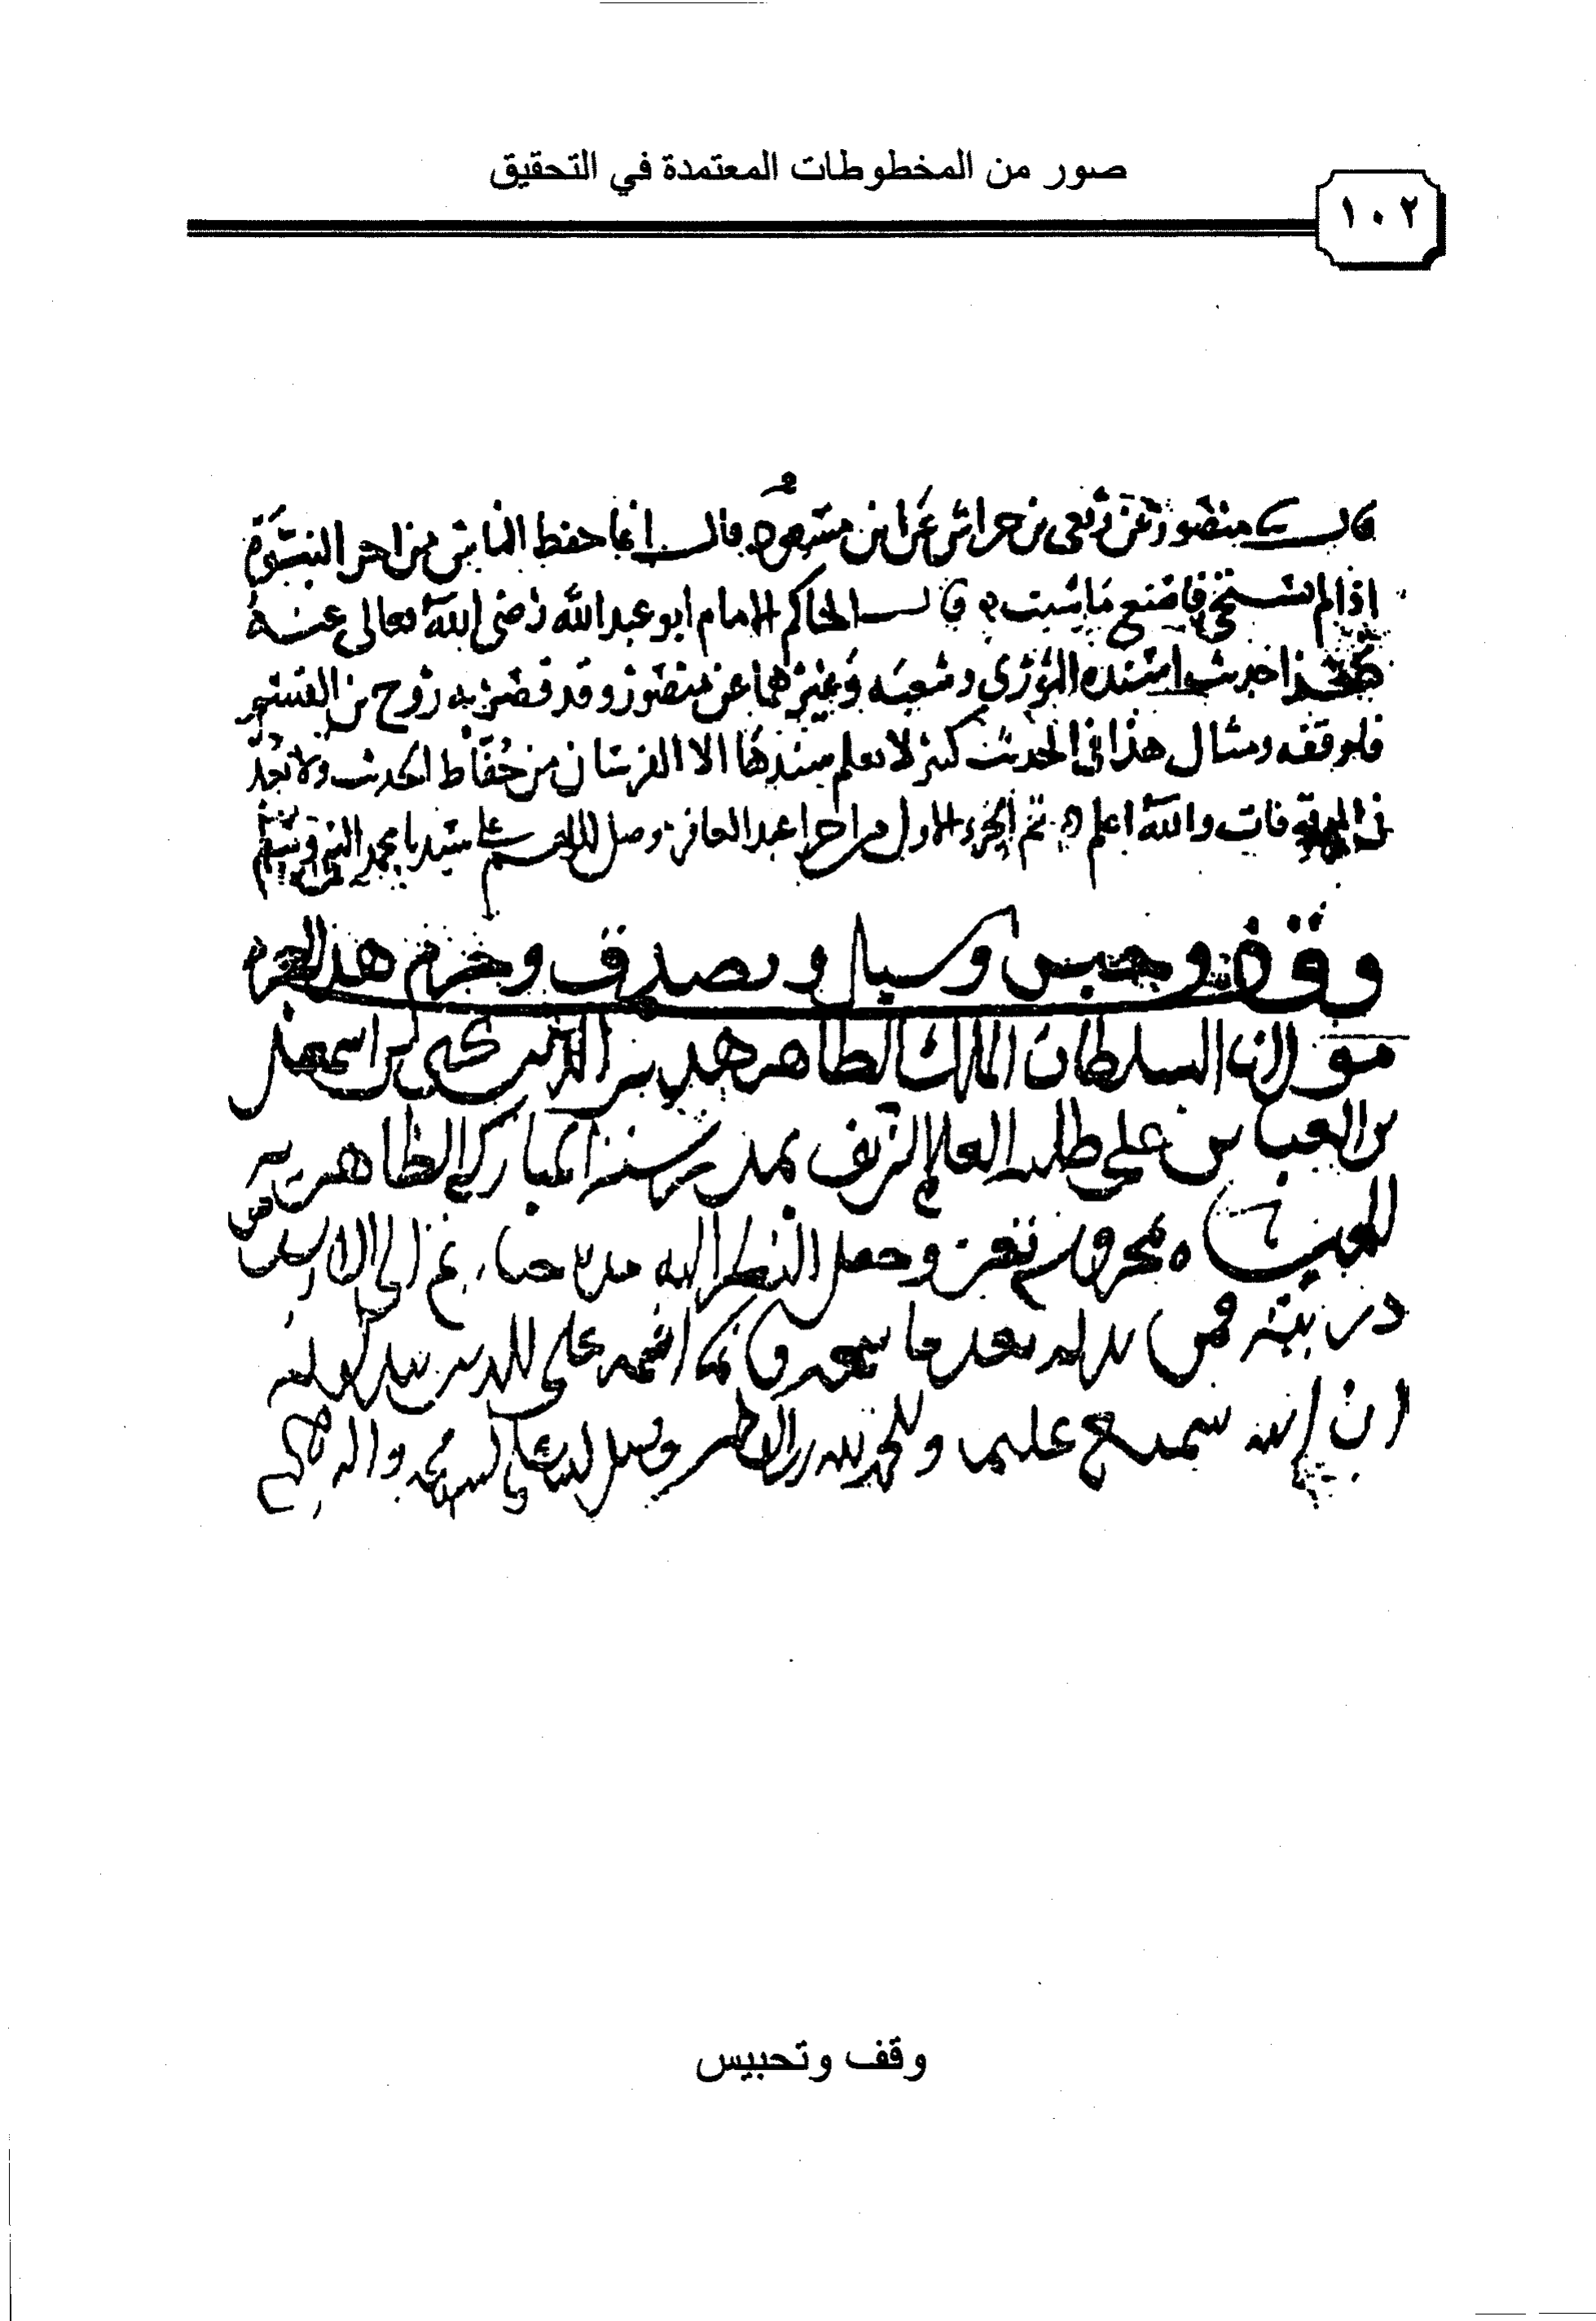 صور من المخطوطات المعتمدة في التحقيق
١٠٢
قال منصور عن ربعي بن حراش عن ابن مسعود قال انما حفظ الناس من اخر النبوة
اذا لم تستحي فاصنع ما شيت قال الحاكم الامام ابو عبد الله رضي الله تعالى عنه
هذا حديث اسنده الثوري وشعبه وغيرهما عن منصور وقد قصر به روح بن القسم
فاوقفه ومثال هذا في الحديث كثير لا يعلم سندها الا الفرسان من حفاظ الحديث ولا تعد
في الموقوفات والله اعلم تم الجزء الاول من اجزا عبد الغافر وصل اللهم على سيدنا محمد النبي وسلم
وقف وحبس وسبل وتصدق وحرم هذا الجزء
مولانا السلطان الملك الظاهر هزبر الدين يحيى بن اسمعيل
بن العباس على طلبه العلم الشريف بمدرسته المباركه الظاهريه
بمحروس تعز وجعل النظر اليه مدة حياته ثم الى الارشد
ذريته فمن بدله بعد ما سمعه فانما اثمه على الذين يبدلونه
ان الله سميع عليم والحمد لله رب العالمين وصلى الله على سيدنا محمد واله
وقف وتحبيس